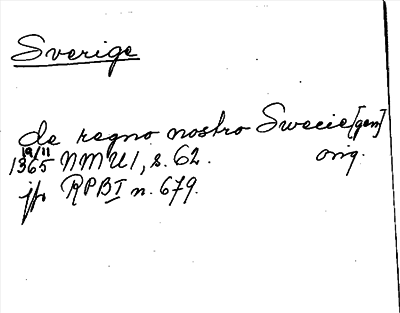 Sverige
de regno nostro Swecie [gen]
19/11
1365 NMU1, s. 62. orig.
jfr RPB I n. 679.